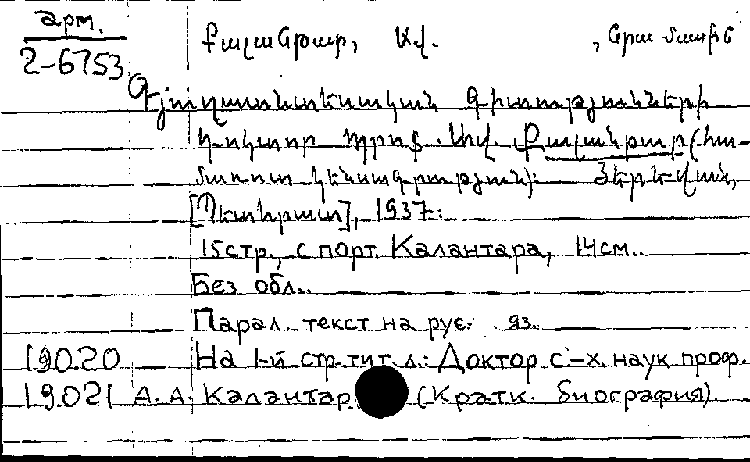 арм.
2-6753
Քալանթար, Ալ. , նրա մասին
Գյուղատնտեսական գիտությունների
դոկտոր պրոֆ. Ալ. Քալանթար (հա-
մառոտ կենսագրություն): Յերևան,
[Պետհրատ], 1937:
15стр., с порт. Калантара, 14см.
Без обл.
Парал. текст на рус. яз.
19020 На 1-й стр. тит. л.: Доктор с.-х. наук проф.
19021 А. А. Калантар (Кратк. биография)